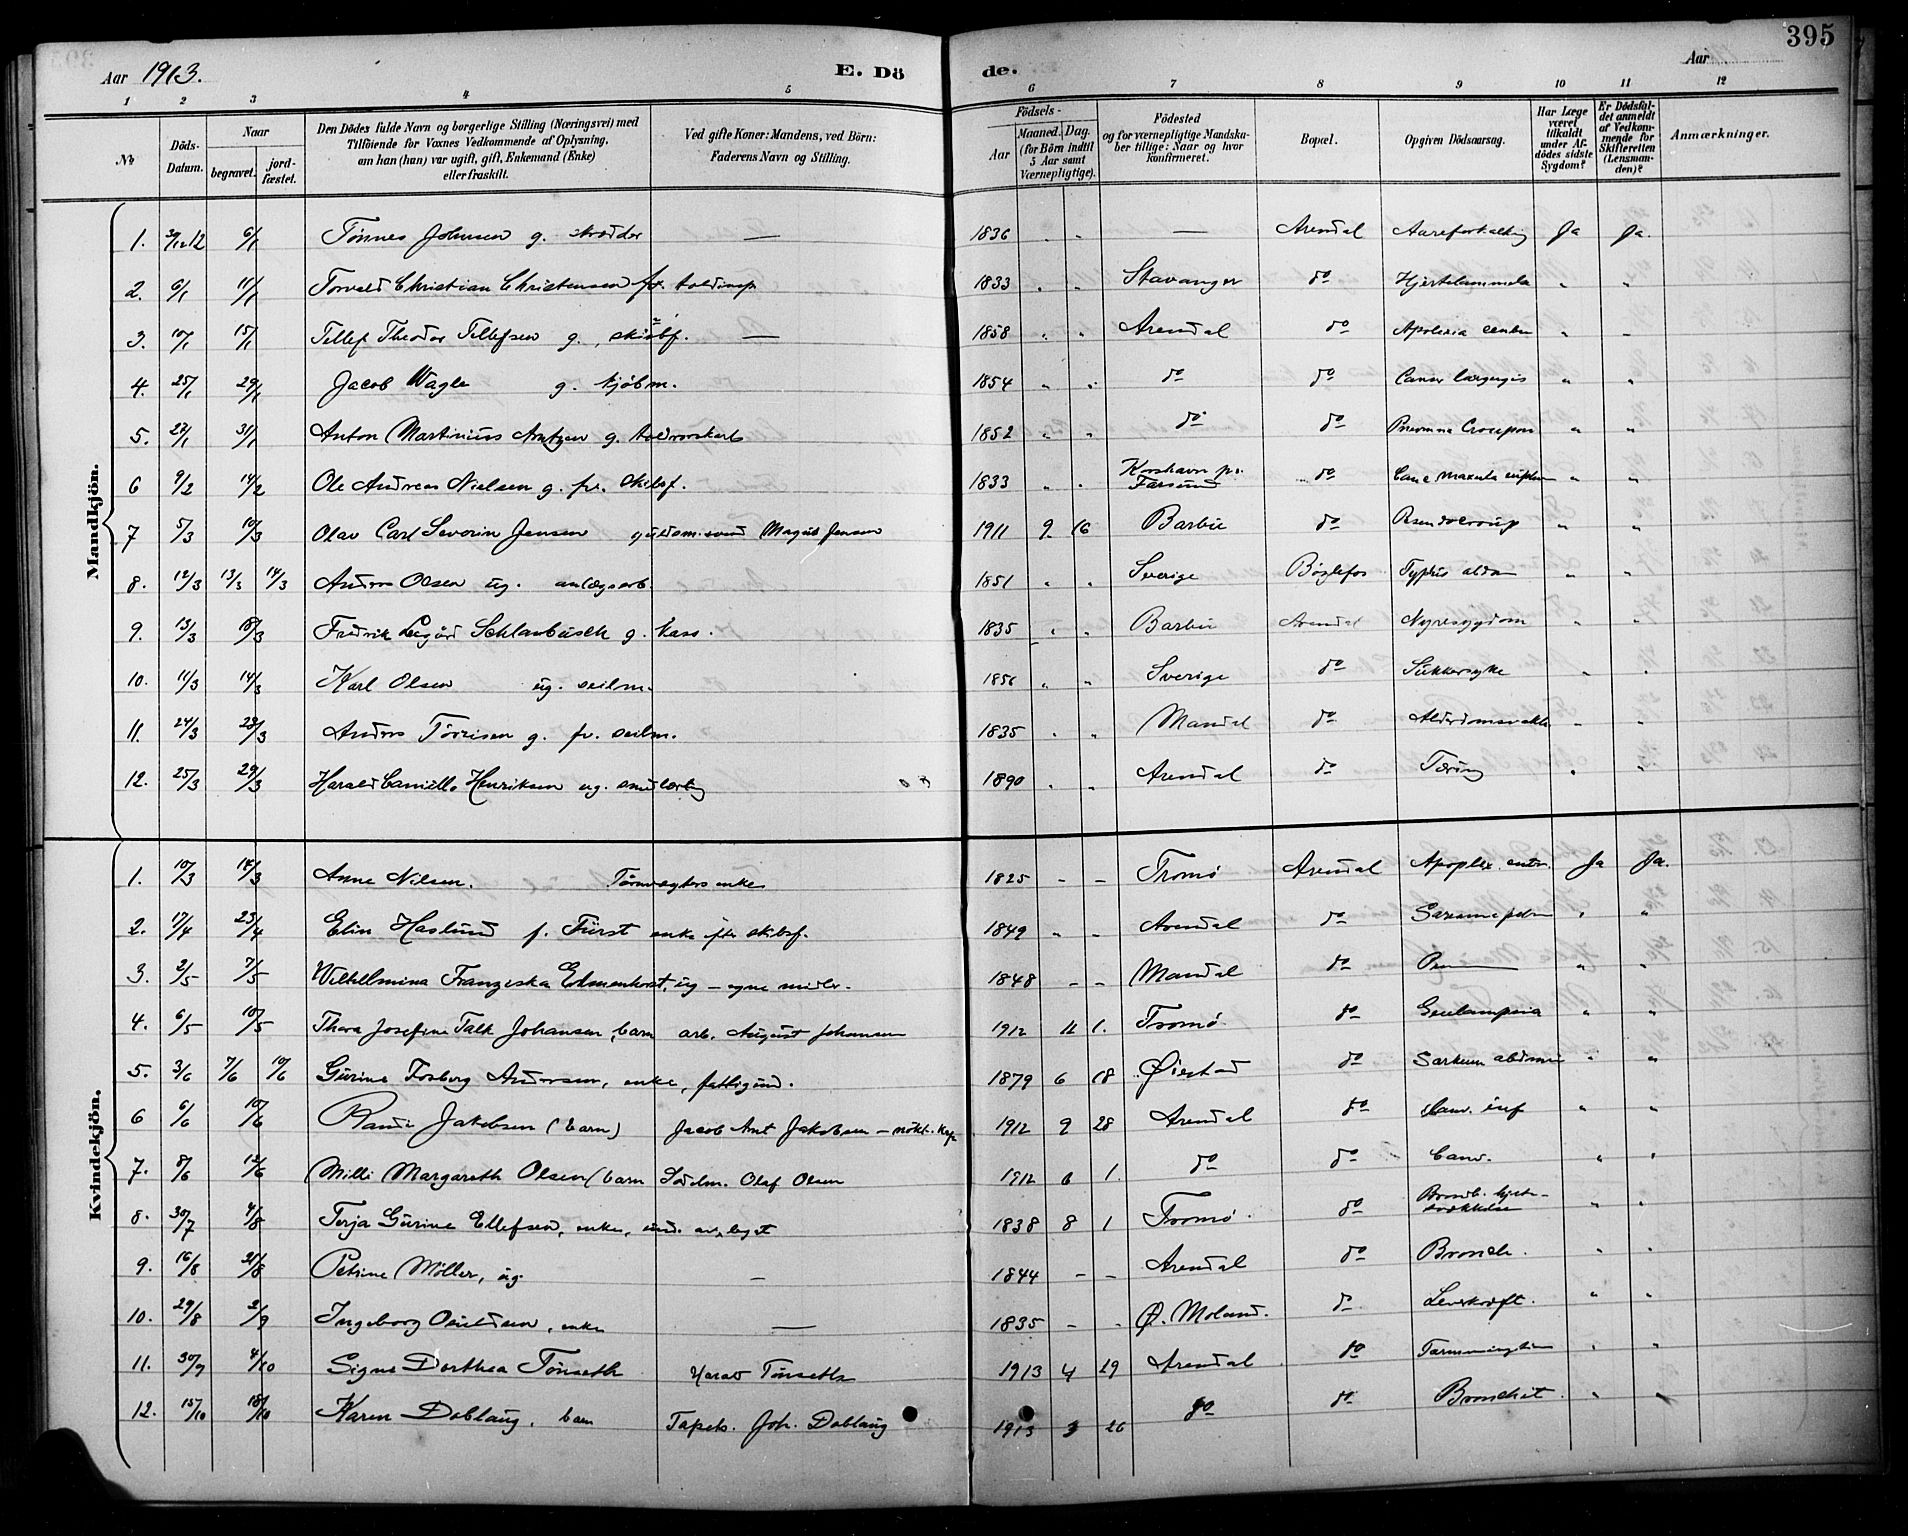 395
Aar 1913. E. Dö de. Aar
1 2 3 4 5 6 7 8 9 10 11 12
No Döds-Datum. Naar begravet. jordfæstet. Den Dödes fulde Navn og borgerlige Stilling (Næringsvei) med Tilföiende for Voxnes Vedkommende af Oplysning, om han (hun) var ugift, gift, Enkemand (Enke) eller fraskilt. Ved gifte Koner: Mandens, ved Börn: Faderens Navn og Stilling. Födsels- Aar Maaned. Dag. (for Börn indtil 5 Aar samt Værnepligtige). Födested og for værnepligtige Mandskaber tillige: Naar og hvor konfirmeret. Bopæl. Opgiven Dödsaarsag. Har Læge været tilkaldt under Afdödes sidste Sygdom? Er Dödsfaldet anmeldt af Vedkommende for Skifteretten (Lensmanden)? Anmærkninger.
Mandkjön.
1. 30/12 12 6/1 Tönnes Johnsen g. skrædder — 1836 " " — Arendal Aareforkalkng Ja Ja.
2. 6/1 11/1 Torvald Christian Christensen 1833 " " Stavanger do Hjertelammelse " "
3. 10/1 15/1 Tellef Theodor Tellefsen g., skibsf. — 1858 " " Arendal do Apolexia " "
4. 25/1 29/1 Jacob Wagle g. kjöbm. 1854 " " do do Cancer " "
5. 1/1 31/1 Anton Martinius Arntzen g. toldrorskarl 1852 " " do do Croupøs " "
6 9/2 14/2 Ole Andreas Nielsen g. fv. skibsf. 1833 " " Korshavn pr. Farsund do " "
7 5/3 10/3 Olav Carl Severin Jensen Magnus Jensen 1911 9 16 Barbu do Pseudocroup " "
8. 12/3 13/3 14/3 Anders Olsen ug. anlægsarb. 1851 " " Sverige Böylefos Typhus " "
9. 13/3 18/3 Fredrik Schlanbusch g. kass. 1835 " " Barbu Arendal Nyresygdom " "
10. 11/3 14/3 Karl Olsen ug. seilm. 1856 " " Sverige do Sukkersyke " "
11. 24/3 28/3 Anders Törrisen g. fv. seilm. 1835 " " Mandal do Alderdomssvakke " "
12. 25/3 29/3 Harald Camillo Henriksen ug. smedlærling 1890 " " Arendal do Tæring " "
Kvindekjön.
1. 10/3 14/3 Anne Nilsen. enke 1825 – – Tromö Arendal Apoplex. Ja Ja.
2. 17/4 23/4 Elin Haslund f. Fürst enke efter skibsf. 1849 " – Arendal do " "
3. 2/5 7/5 Wilhelmina Franziska ug – egne midler. 1848 – – Mandal do " "
4. 6/5 10/5 Thora Josefine Falk Johansen, barn arb. August Johansen 1912 11 1. Tromö do Eclampsia " "
5. 3/6 7/6 10/6 Gurine Fosberg Andersen, enke, fattigund. 1879 6 18 Öiestad do " "
6 6/6 10/6 Randi Jakobsen (barn) Jacob Ant Jakobsen – 1912 9 28 Arendal do " "
7. 8/6 12/6 Milli Margareth Olsen (barn Olaf Olsen 1912 6 1. do do " "
8. 30/7 4/8 Terja Gurine Ellefsen, enke, 1838 8 1 Tromö. do " "
9. 16/8 21/8 Petrine Möller, ug. – 1844 – – Arendal do Bronch. " "
10. 29/8 2/9 Ingeborg enke — 1835 – " Ö. Moland. do Leverkræft. " "
11. 30/9 4/10 Signe Dorthea Tönseth Harald Tönseth 1913 4 29 Arendal do " "
12. 15/10 18/10 Karen Doblaug, barn Tapets. Joh. Doblaug 1913 3 26 do do Bronchit " "